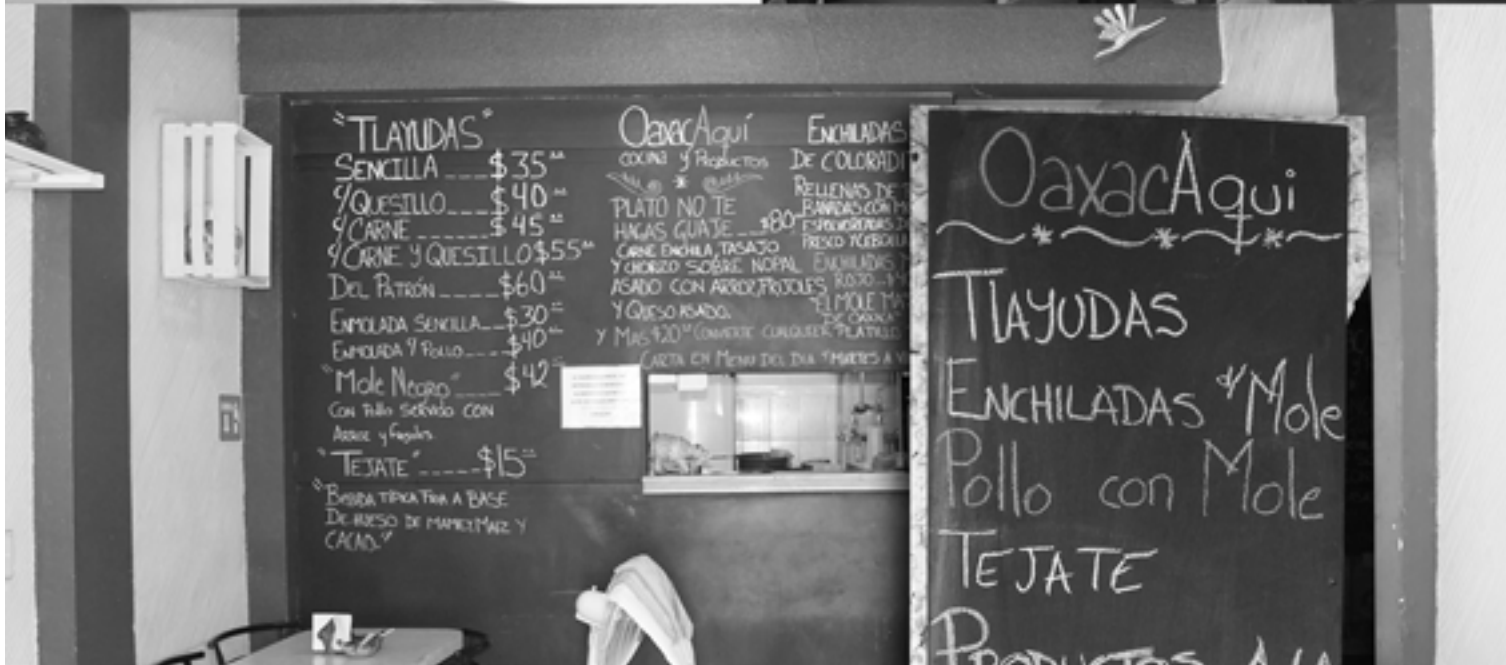 "TLAYUDAS"
SENCILLA ___ $35
c/QUESILLO ___ $40
c/CARNE ___ $45
c/CARNE Y QUESILLO $55
DEL PATRÓN ____ $60
ENMOLADA SENCILLA __ $30
ENMOLADA Y POLLO ___ $40
"MOLE NEGRO" ___ $42
CON Pollo SERVIDO CON
ARROZ y Frijoles.
"TEJATE" _____ $15
"BEBIDA TÍPICA FRIA A BASE
DE HUESO DE MAMEY, MAIZ Y
CACAO."
OaxacAquí
COCINA y PRODUCTOS
PLATO NO TE
HAGAS GUAJE __ $80
CARNE ENCHILA, TASAJO
Y CHORIZO SOBRE NOPAL
ASADO CON ARROZ, FRIJOLES,
Y QUESO ASADO.
Y MAS $20 CONVIERTE CUALQUIER PLATILLO
CARTA EN MENU DEL DIA MARTES A
ENCHILADAS
DE
RELLENAS DE
BAÑADAS CON
ESPOLVOREADAS
FRESCO Y CEBOLLA
ENCHILADAS
ROJO
"EL MOLE
DE OAXACA"
OaxacAqui
TlAYUDAS
ENCHILADAS d/Mole
Pollo con Mole
TEJATE
PRODUCTOS A LA